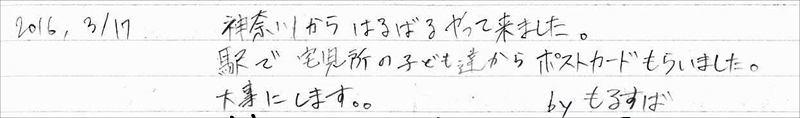 2016, 3/17 神奈川からはるばるやって来ました。
駅で宅児所の子ども達からポストカードもらいました。
大事にします。。 by もるすば